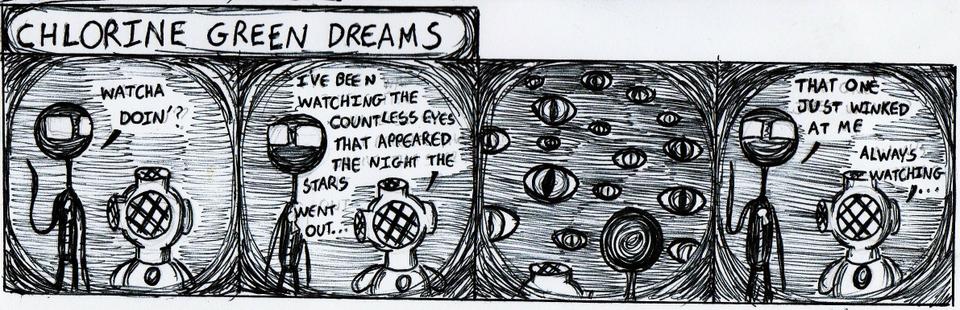 CHLORINE GREEN DREAMS
WATCHA
DOIN'?
I'VE BEEN
WATCHING THE
COUNTLESS EYES
THAT APPEARED
THE NIGHT THE
STARS
WENT
OUT...
THAT ONE
JUST WINKED
AT ME
ALWAYS
WATCHING
...